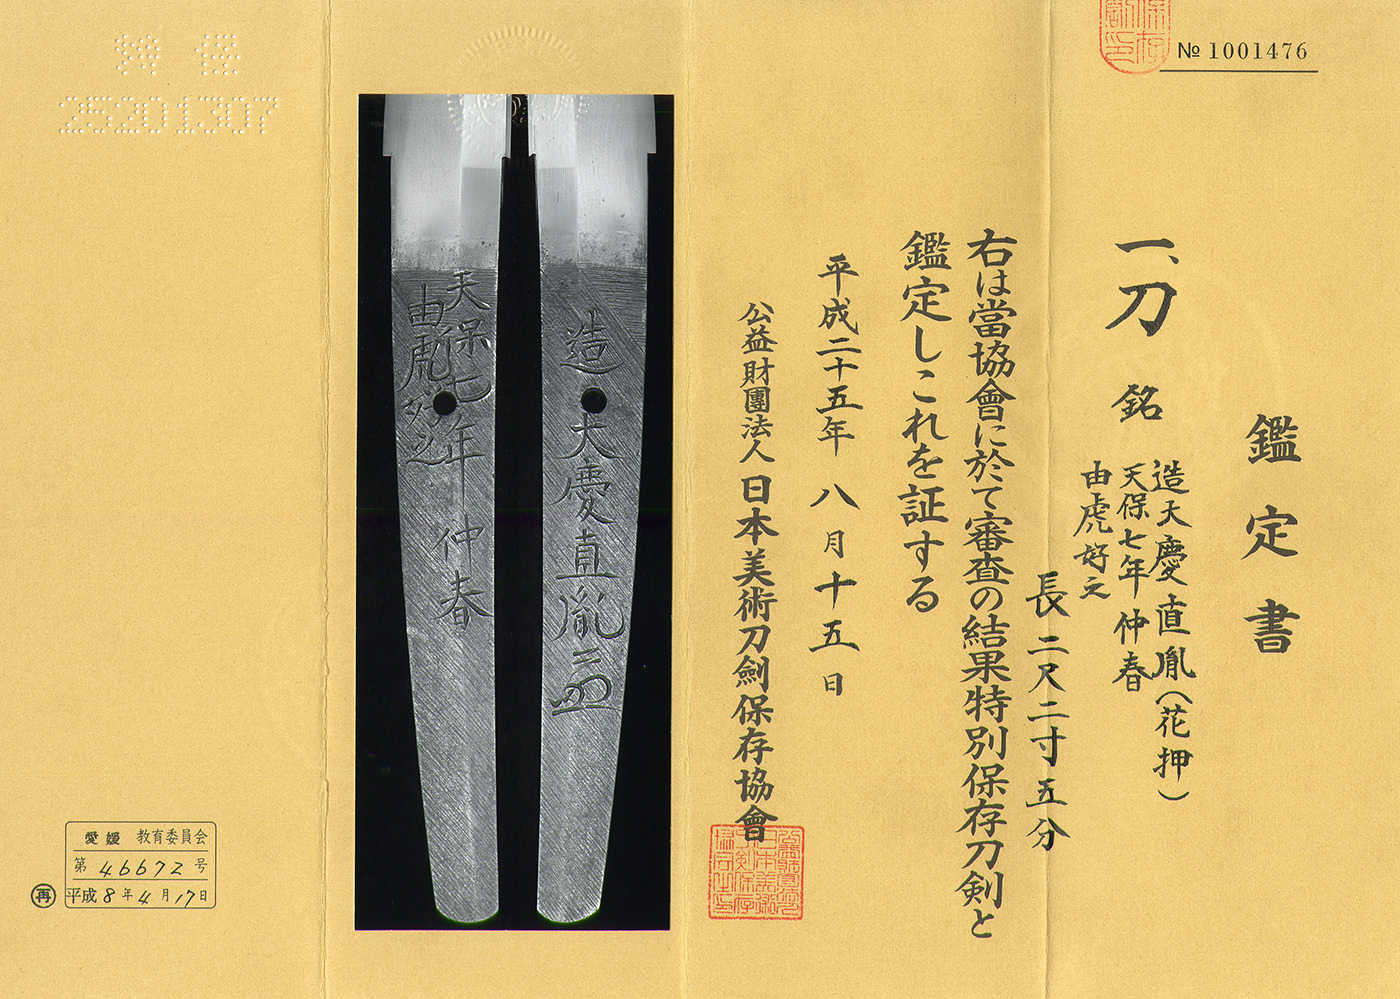 № 1001476
鑑定書
一、刀 銘
造大慶直胤(花押)
天保七年仲春
由虎好之
長二尺二寸五分
右は當協會に於て審査の結果特別保存刀剣と
鑑定しこれを証する
平成二十五年八月十五日
公益財團法人日本美術刀劍保存協會
造大慶直胤
天保七年仲春
由虎好之
特保
25201307
愛媛 教育委員会
第 46672 号
再 平成 8年 4月 17日